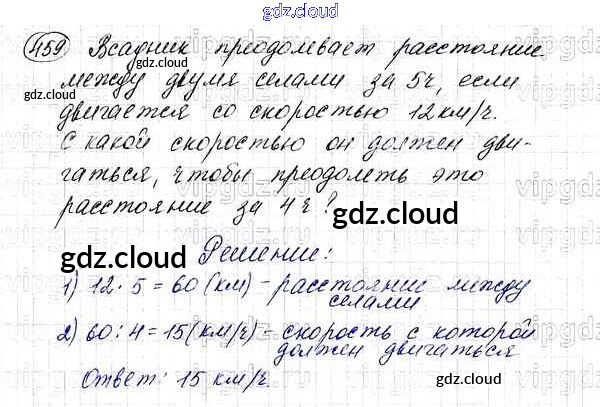 gdz.cloud
459 Всадник преодолевает расстояние
между двумя селами за 5ч, если
gdz.cloud gdz.cloud
двигается со скоростью 12км/ч.
С какой скоростью он должен дви-
гаться, чтобы преодолеть это
расстояние за 4ч?
gdz.cloud
gdz.cloud
Решение:
1) 12 · 5 = 60 (км) - расстояние между
селами
gdz.cloud
2) 60 : 4 = 15 (км/ч) - скорость с которой
должен двигаться
Ответ: 15 км/ч.
gdz.cloud